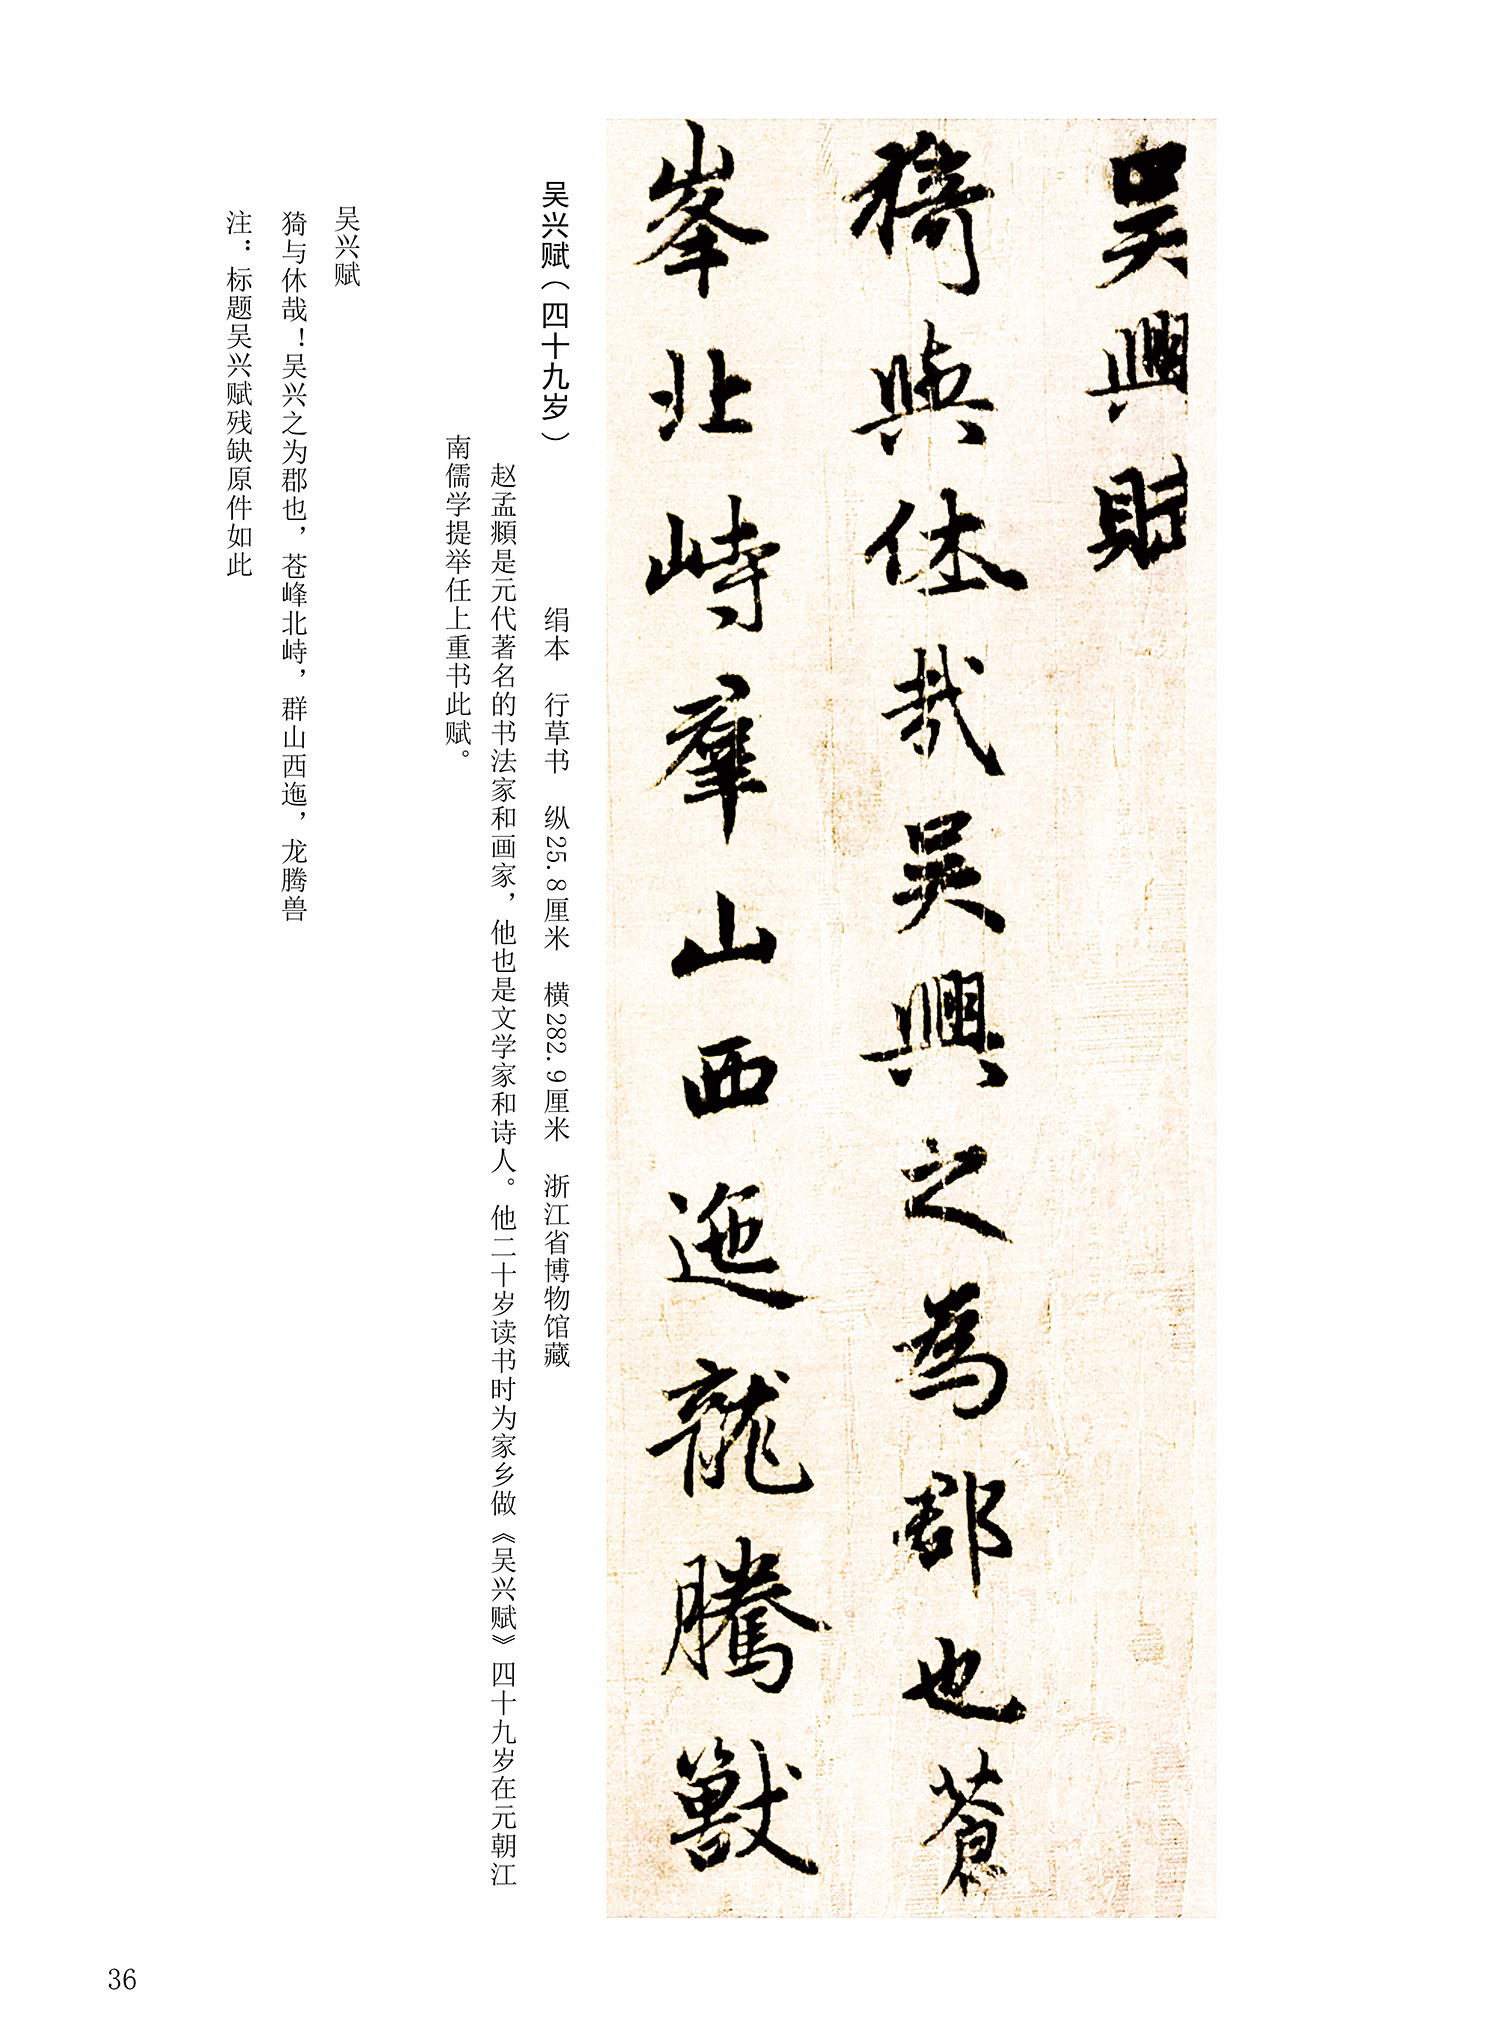 吴興賦
猗與休哉吴興之為郡也蒼
峯北峙羣山西迤龍騰獸
吴兴赋（四十九岁）
绢本 行草书 纵25.8厘米 横282.9厘米 浙江省博物馆藏
赵孟頫是元代著名的书法家和画家，他也是文学家和诗人。他二十岁读书时为家乡做《吴兴赋》四十九岁在元朝江
南儒学提举任上重书此赋。
吴兴赋
猗与休哉！吴兴之为郡也，苍峰北峙，群山西迤，龙腾兽
注：标题吴兴赋残缺原件如此
36